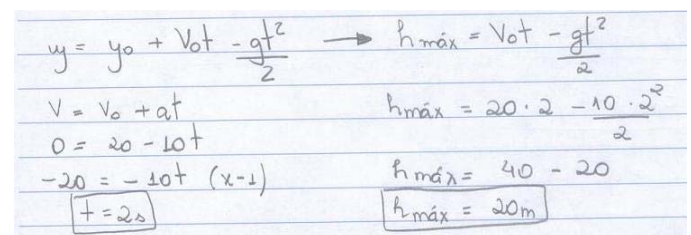 y = y₀ + V₀t - gt²/2 → hmáx = V₀t - gt²/2
V = V₀ + at
0 = 20 - 10t
-20 = -10t (x-1)
t = 2s
hmáx = 20·2 - 10·2²/2
hmáx = 40 - 20
hmáx = 20m